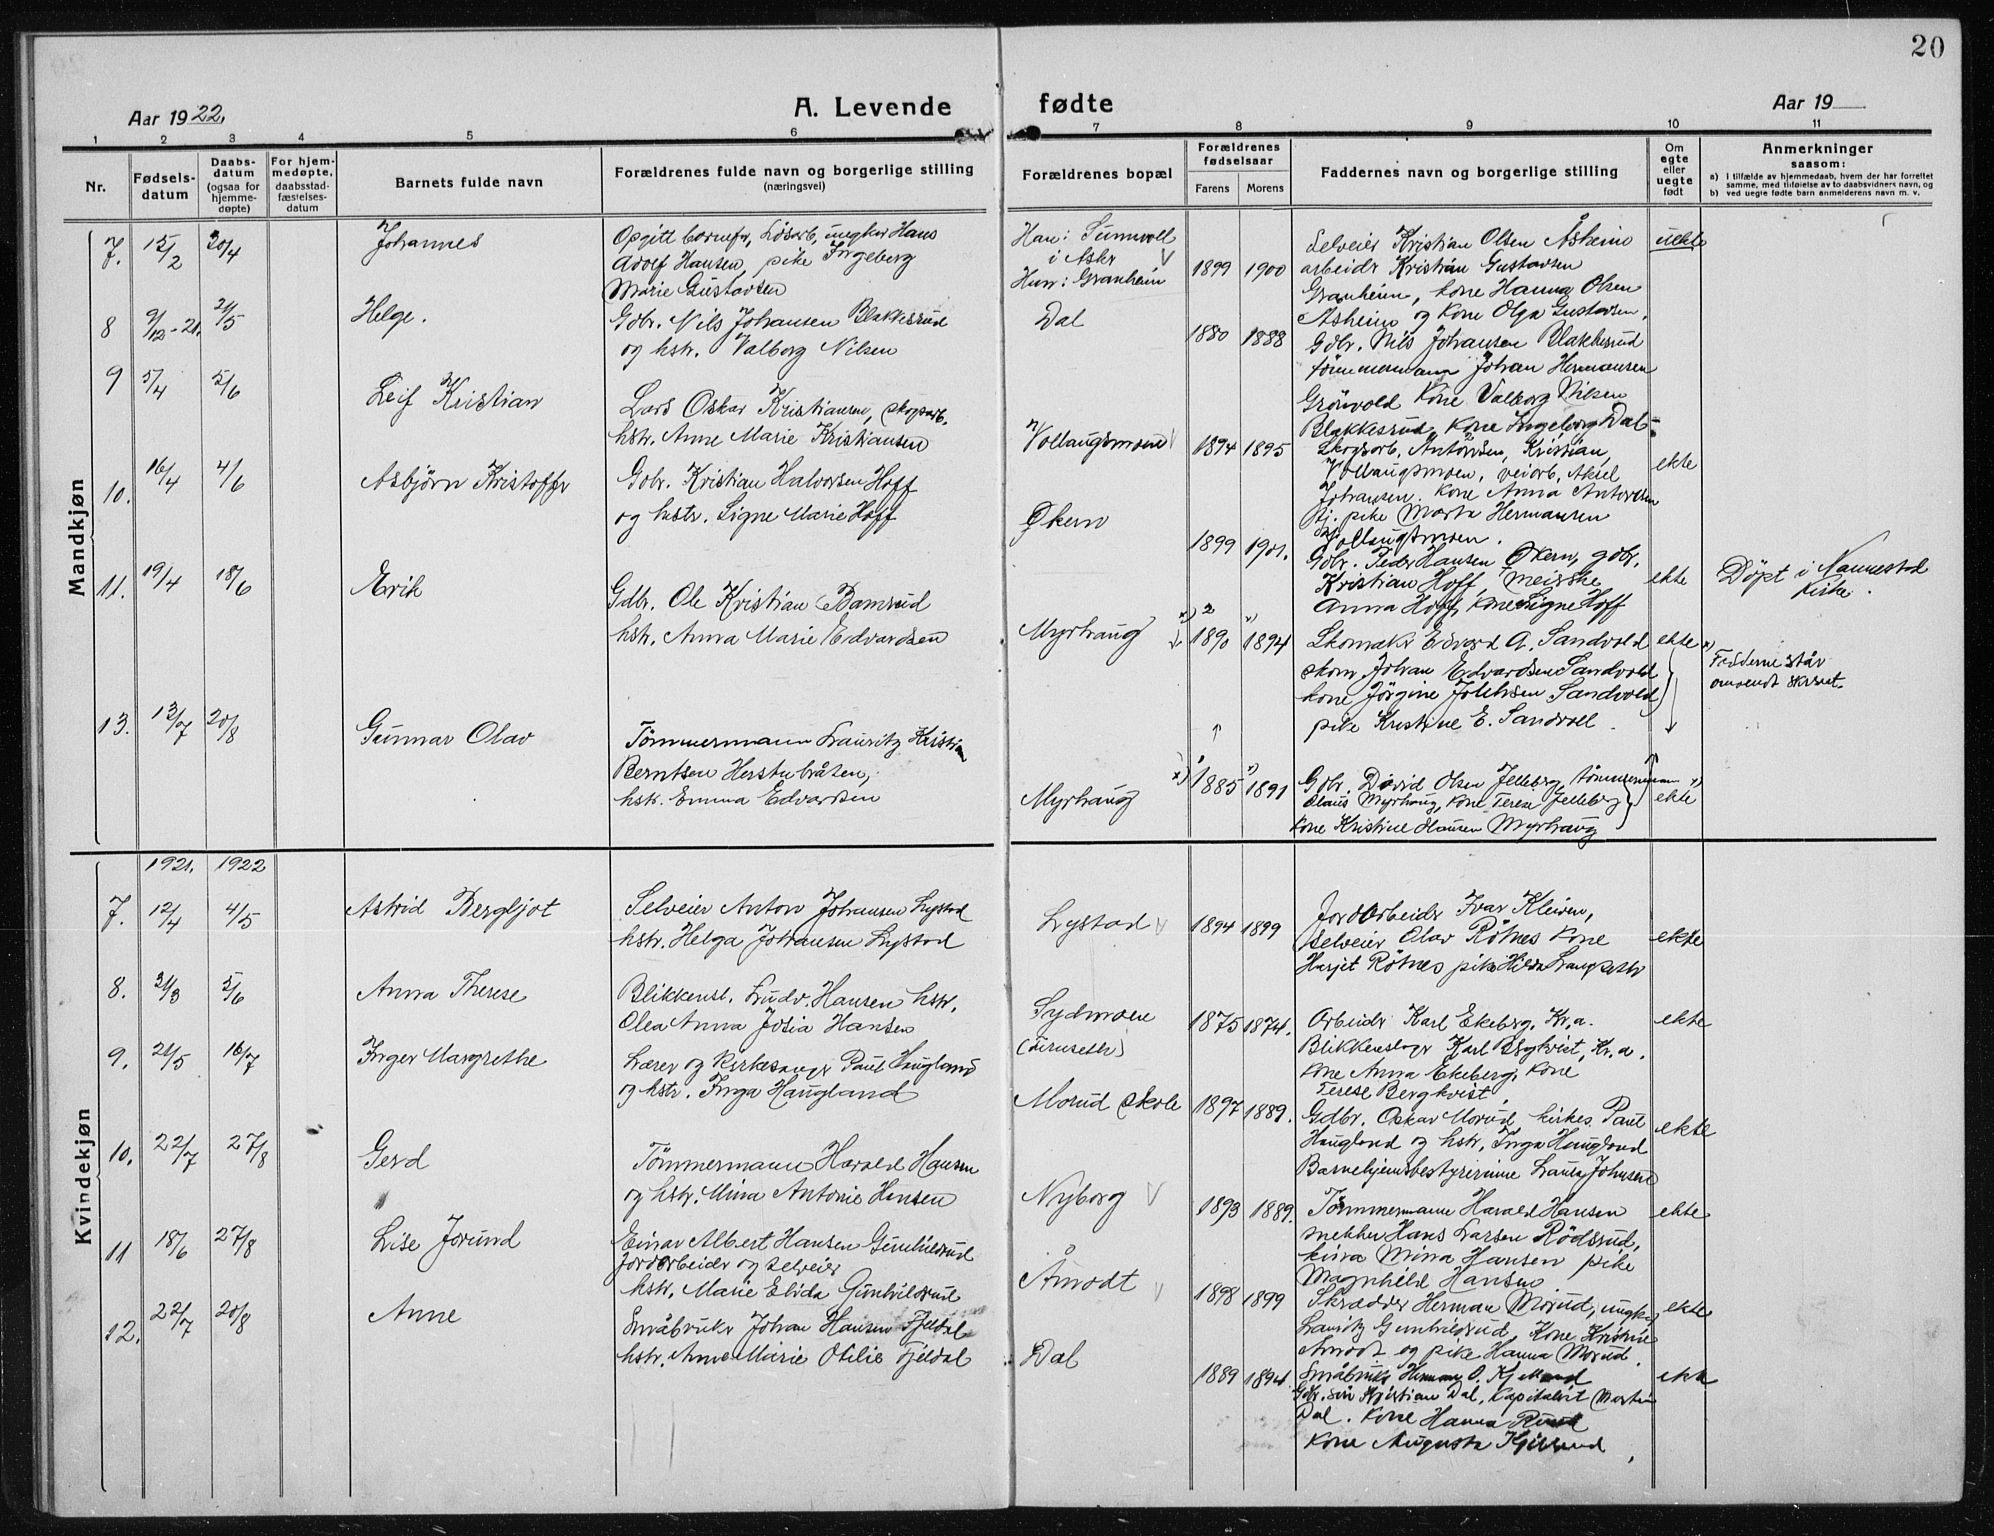 20
Aar 1922.
A. Levende fødte
Aar 19
1 2 3 4 5 6 7 8 9 10 11
Nr.
Fødsels-
datum
Daabs-
datum
(ogsaa for
hjemme-
døpte)
For hjem-
medøpte,
daabsstad-
fæstelses-
datum
Barnets fulde navn
Forældrenes fulde navn og borgerlige stilling
(næringsvei)
Forældrenes bopæl
Forældrenes
fødselsaar
Farens Morens
Faddernes navn og borgerlige stilling
Om
egte
eller
uegte
født
Anmerkninger
saasom:
a) I tilfælde av hjemmedaab, hvem der har forrettet
samme, med tilføielse av to daabsvidners navn, og
b) ved uegte fødte barn anmelderens navn m. v.
Mandkjøn
7. 15/2 30/4 Johannes
Opgitt barnefr, Løsarb, ungkar Hans
Adolf Hansen, pike Ingeborg
Marie Gustavsen
Han: Sunnvoll
i Askr
Hun: Granheim
1899 1900
Selveier Kristian Olsen Åsheim
arbeidr Kristian Gustavsen
Granheim, kone Hanna Olsen
Åsheim og kone Olga Gustavsen.
uekte
8 9/12-21. 21/5 Helge.
Gdbr. Nils Johansen Blakkesrud
og hstr. Valborg Nilsen
Dal
1880 1888
Gdbr. Nils Johansen Blakkesrud
tömmermann Johan Hermansen
Grönvold kone Valborg Nilsen
Blakkesrud, kone Ingeborg Dal
9 5/4 5/6 Leif Kristian
Lars Oskar Kristiansen, skogsarb.
hstr. Anne Marie Kristiansen
Vollaugsmoen
1894 1895
Skogsarb. Antonsen, Kristian,
Vollaugsmoen, veiarb. Aksel
Johansen. kone Anna Antonsen
tj. pike Marta Hermansen
Vollaugsmoen.
ekte
10. 16/4 4/6 Asbjörn Kristoffer
Gdbr. Kristian Halvorsen Hoff
og hustr. Signe Marie Hoff
Økern
1899 1901.
Gdbr. Peder Hansen Økern, gdbr.
Kristian Hoff, meierske
Anna Hoff, kone Signe Hoff
ekte
Döpt i Nannestad
Kirke.
11. 19/4 18/6 Erik
Gdbr. Ole Kristian Bamrud
hstr. Anna Marie Edvardsen
Myrhaug
1890 1894
Skomakr Edvard A. Sandvold
skom. Johan Edvardsen Sandvold
kone Jörgine Johsen Sandvold
pike Kristine E. Sandvoll.
ekte
Fadderne står
omvendt skrevet.
13. 13/7 20/8 Gunnar Olav
Tömmermann Lauritz Kristian
Berntsen Herstubråten,
hstr. Emma Edvardsen
Myrhaug
1885 1891
Gdbr. David Olsen Jelleberg, tömmermann
Olaus Myrhaug, kone Terese Jelleberg
kone Kristine Hansen Myrhaug
ekte
Kvindekjøn
1921. 1922
7. 12/4 4/5 Astrid Bergljot
Selveier Anton Johansen Lystad
hstr. Helga Johansen Lystad
Lystad
1894 1899
Jordarbeidr Ivar Kleiven,
selveier Olav Rötnes kone
Marjit Rötnes pike Hilda Langseth
ekte
8. 31/3 5/6 Anna Therese
Blikkensl. Ludv. Hansen hstr.
Olea Anna Josia Hansen
Sydmoen
(Furuseth)
1875 1874.
Arbeidr Karl Ekeberg, Kr.a.
Blikkenslagr Karl Bergkvist, Kr.a.
kone Anna Ekeberg, kone
Terese Bergkvist.
ekte
9. 21/5 16/7 Inger Margrethe
Lærer og kirkesangr Paul Haugland
og hstr. Inga Haugland
Morud skole
1897 1889.
Gdbr. Oskar Morud, kirkes. Paul
Haugland og hstr. Inga Haugland
Barnehjemsbestyrerinne Laura Johnsen
ekte
10. 22/7 27/8 Gerd
Tömmermann Harald Hansen
og hstr. Mina Antonie Hansen
Nyborg
1893 1889.
Tömmermann Harald Hansen
snekker Hans Larsen Rödsrud,
kona Mina Hansen pike
Magnhild Hansen.
ekte
11 18/6 27/8 Lise Jorund
Einar Albert Hansen Gunhildrud
Jordarbeidr og selveier
hstr. Marie Elida Gunhildrud
Åmodt
1898 1899
Skrædder Herman Morud, ungk.
Lauritz Gunhildrud, kone Kristine
Åmodt og pike Hanna Morud.
ekte
12. 22/7 20/8 Anne
Småbrukr Johan Hansen Fjeldal
hstr. Anne Marie Otilie Fjeldal
Dal
1889 1894
Småbrukr Herman O. Kjelsrud
Gdbr. sön Kristian Dal, Kapitalist Martin
Dal. Kone Hanna Ruud
kone Augusta Kjelsrud.
ekte